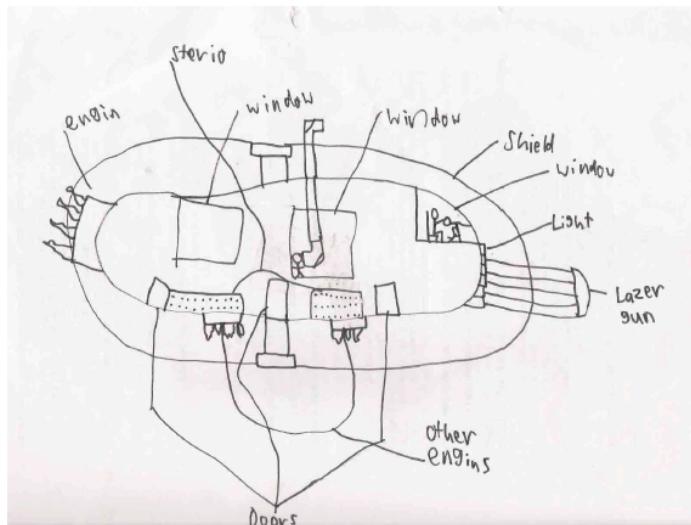 sterio
engin
window
window
Shield
window
Light
Lazer
gun
other
engins
Doors